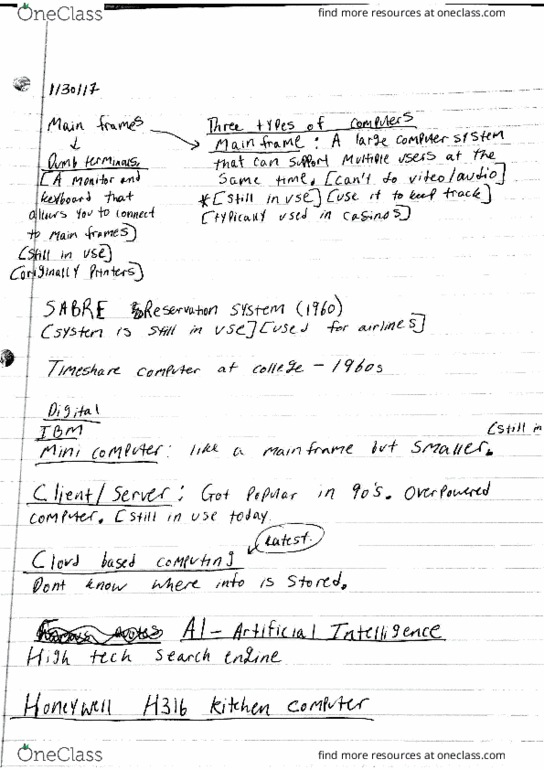 OneClass
find more resources at oneclass.com
1/30/17
Main frames
Dumb terminals
[A monitor and
keyboard that
allows you to connect
to main frames]
[Still in use]
[originally Printers]
Three types of computers
Main frame : A large computer system
that can support multiple users at the
same time. [can't do video/audio]
*[still in use] [use it to keep track]
[typically used in casinos]
SABRE Reservation system (1960)
[system is still in use] [used for airlines]
Timeshare computer at college - 1960s
Digital
IBM
[still in
Mini computer: like a mainframe but smaller.
Client/Server: Got Popular in 90's. Overpowered
computer. [still in use today.
Latest.
Cloud based computing
Dont know where info is stored.
AI - Artificial Intelligence
High tech search engine
Honeywell H316 kitchen computer
OneClass
find more resources at oneclass.com